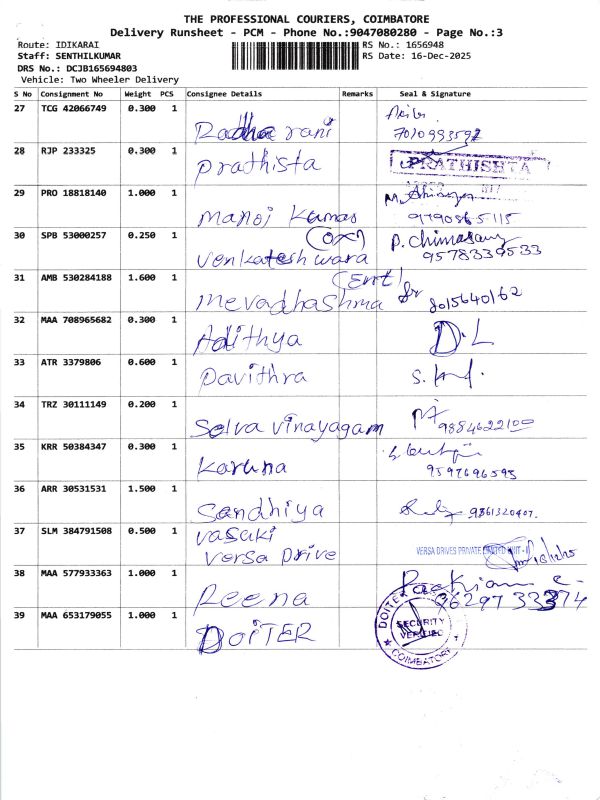 THE PROFESSIONAL COURIERS, COIMBATORE
Delivery Runsheet - PCM - Phone No.:9047080280 - Page No.:3
Route: IDIKARAI RS No.: 1656948
Staff: SENTHILKUMAR RS Date: 16-Dec-2025
DRS No.: DCJB165694803
Vehicle: Two Wheeler Delivery
S No Consignment No Weight PCS Consignee Details Remarks Seal & Signature
27 TCG 42066749 0.300 1
Radha rani 7010993592
28 RJP 233325 0.300 1
Prathista PRATHISHTA
29 PRO 18818140 1.000 1
Manoj Kumar 9790565115
30 SPB 53000257 0.250 1
(OX) P. Chinnasamy
Venkateshwara 9578339533
31 AMB 530284188 1.600 1
(Ent)
mevadhashma 8015640162
32 MAA 708965682 0.300 1
Adithya D.L
33 ATR 3379806 0.600 1
Pavithra S.
34 TRZ 30111149 0.200 1
Selva vinayagam 9884622100
35 KRR 50384347 0.300 1
Karuna 9597696595
36 ARR 30531531 1.500 1
Sandhiya 9861320407.
37 SLM 384791508 0.500 1
Vasaki
Versa Drive VERSA DRIVES PRIVATE LIMITED UNIT - II
38 MAA 577933363 1.000 1
Reena 9629733374
39 MAA 653179055 1.000 1
DOITER DOITER SECURITY VERIFIED COIMBATORE